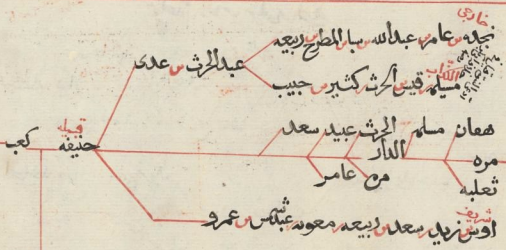 خارجي
نجده بن عامر بن عبدالله بن سيار بن المطرح بن ربيعه
الكذاب
مسيلمه بن قيس بن الحرث بن كثير بن حبيب
عبدالحرث بن عدى
هفان مسلم الحرث عبيد سعد
الدار
مره
ثعلبه
مره عامر
قبيله
حنيفه كعب
شريف
اوس بن زيد بن سعد بن ربيعه بن معويه بن عبدشمس بن عمرو